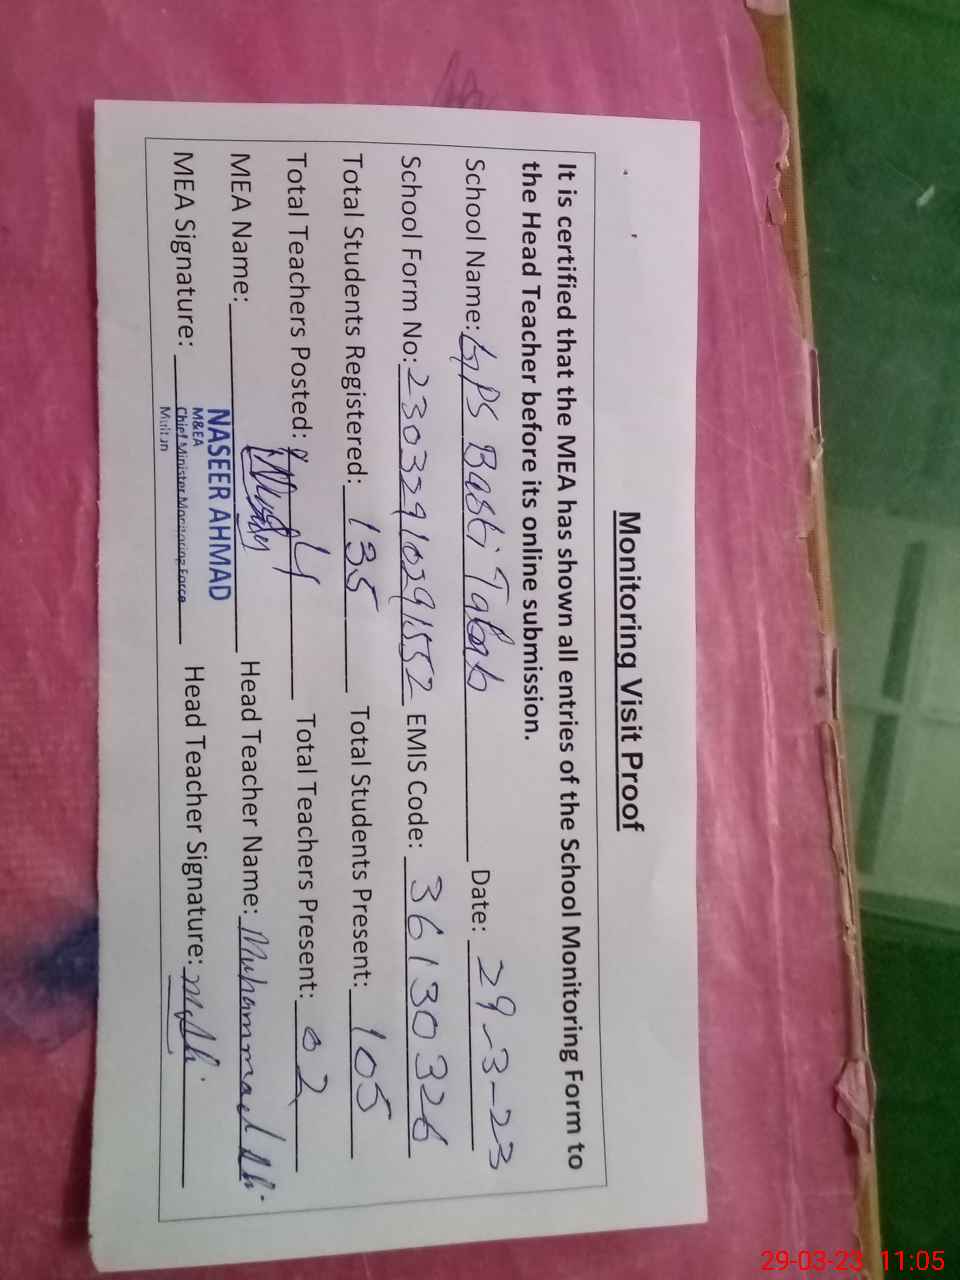 Monitoring Visit Proof
It is certified that the MEA has shown all entries of the School Monitoring Form to
the Head Teacher before its online submission.
School Name: GPS Basti Talab Date: 29-3-23
School Form No: 23032910291552 EMIS Code: 36130326
Total Students Registered: 135 Total Students Present: 105
Total Teachers Posted: 4 Total Teachers Present: 02
MEA Name: Head Teacher Name: Muhammad Ali
NASEER AHMAD
M&EA
MEA Signature: Chief Minister Monitoring Force Head Teacher Signature:
Multan
29-03-23 11:05